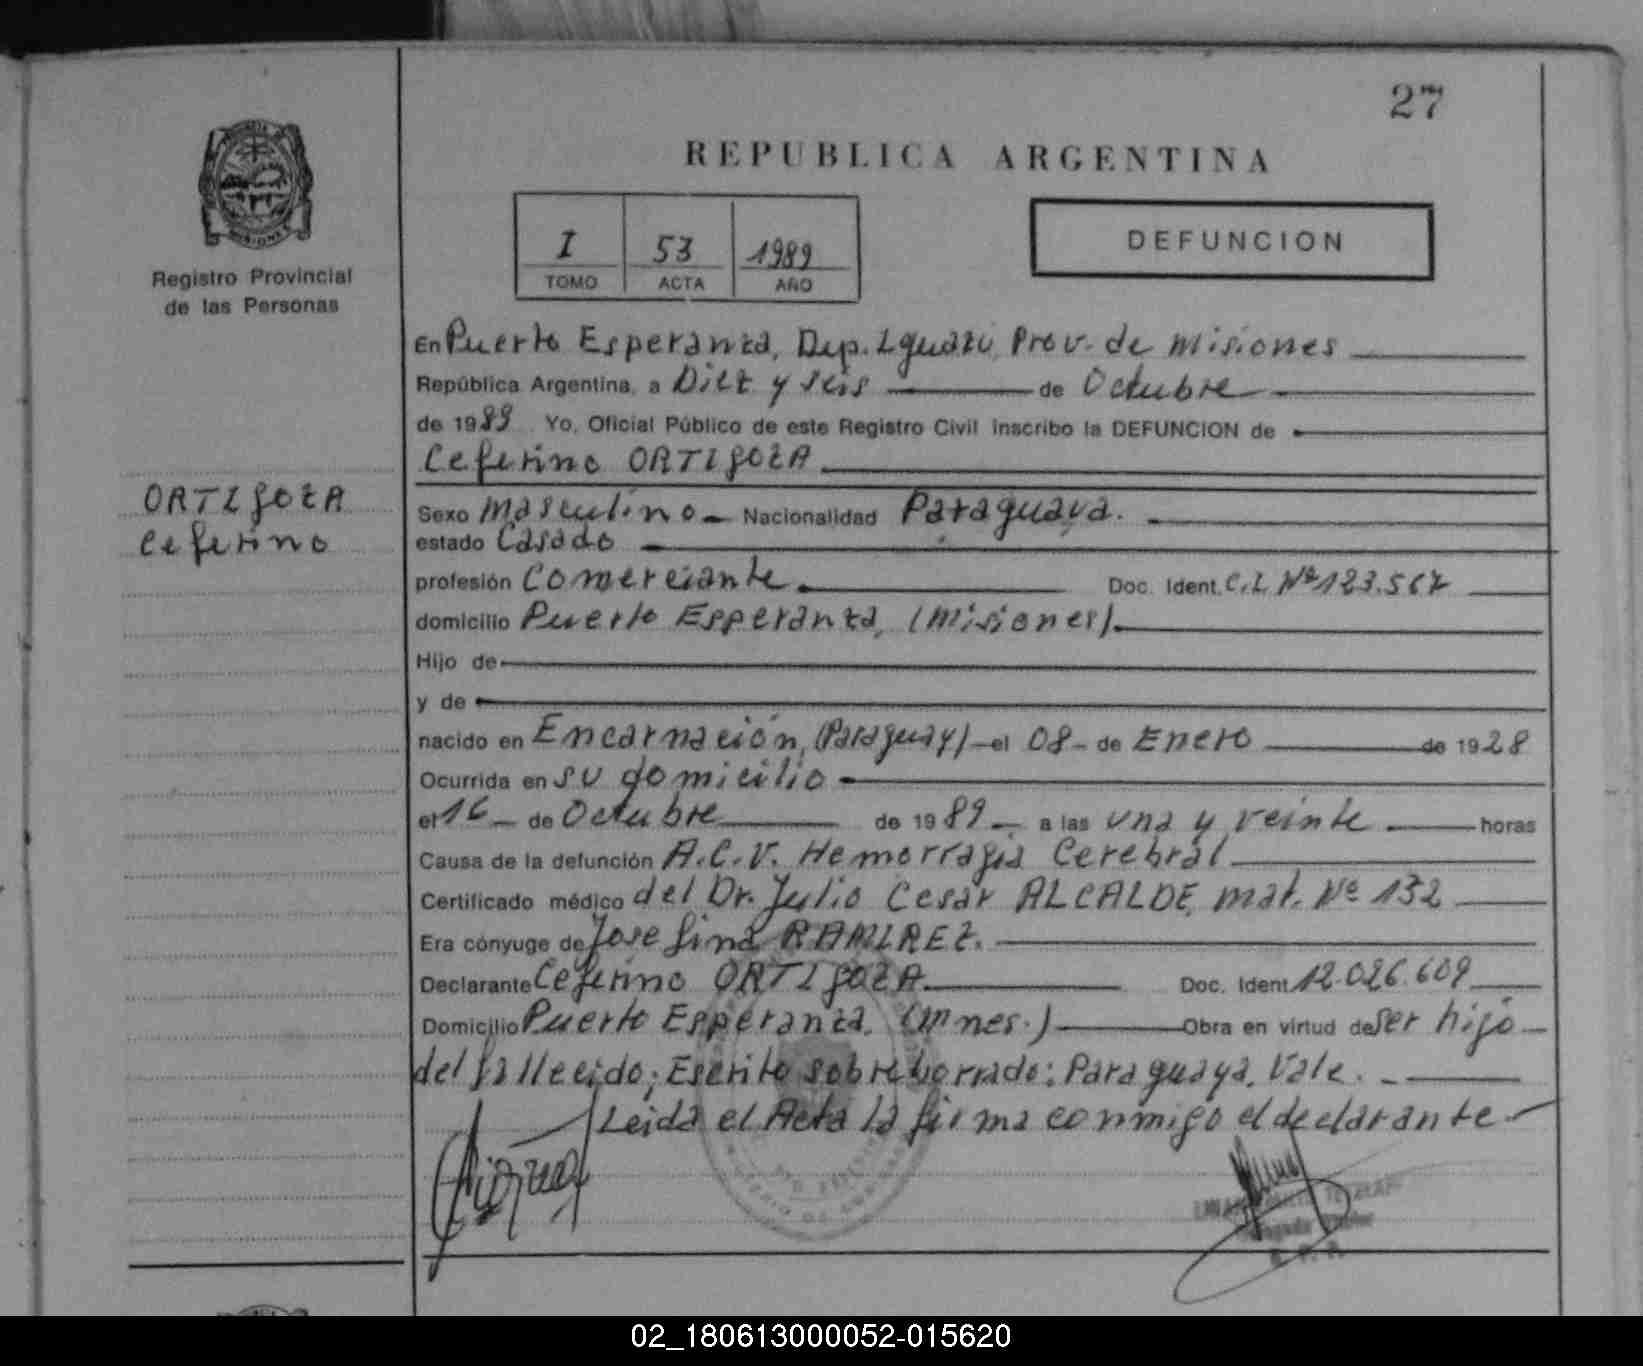 27
REPUBLICA ARGENTINA
I 53 1989
TOMO ACTA AÑO
DEFUNCION
PROVINCIA DE
MISIONES
Registro Provincial
de las Personas
ORTIgOZA
Ceferino
En Puerto Esperanza, Dep. Iguazú, Prov. de Misiones
República Argentina, a Diez y seis de Octubre
de 1989 Yo, Oficial Público de este Registro Civil inscribo la DEFUNCION de
Ceferino ORTIgOZA
Sexo Masculino Nacionalidad Paraguaya.
estado Casado
profesión Comerciante. Doc. Ident. C.I. Nº 123.567
domicilio Puerto Esperanza, (Misiones).
Hijo de
y de
nacido en Encarnación, (Paraguay) el 08 de Enero de 1928
Ocurrida en su domicilio
el 16 de Octubre de 1989 a las una y veinte horas
Causa de la defunción A.C.V. Hemorragia Cerebral
Certificado médico del Dr. Julio Cesar ALCALDE, mat. Nº 132
Era cónyuge de Josefina RAMIREZ.
Declarante Ceferino ORTIgOZA Doc. Ident 12.026.609
Domicilio Puerto Esperanza, (Mnes.) Obra en virtud de ser hijo
del fallecido; Escrito sobre borrado: Paraguaya. Vale.
Leida el Acta la firma conmigo el declarante
02_180613000052-015620